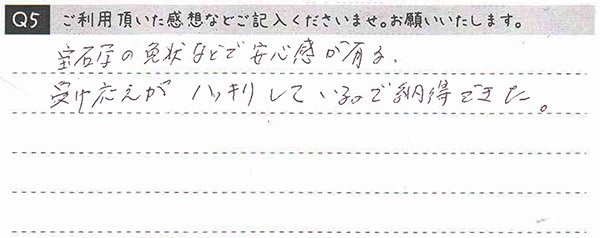 Q5 ご利用頂いた感想などご記入くださいませ。お願いいたします。
宝石学の免状などで安心感が有る、
受け応えが ハッキリしているので納得できた。